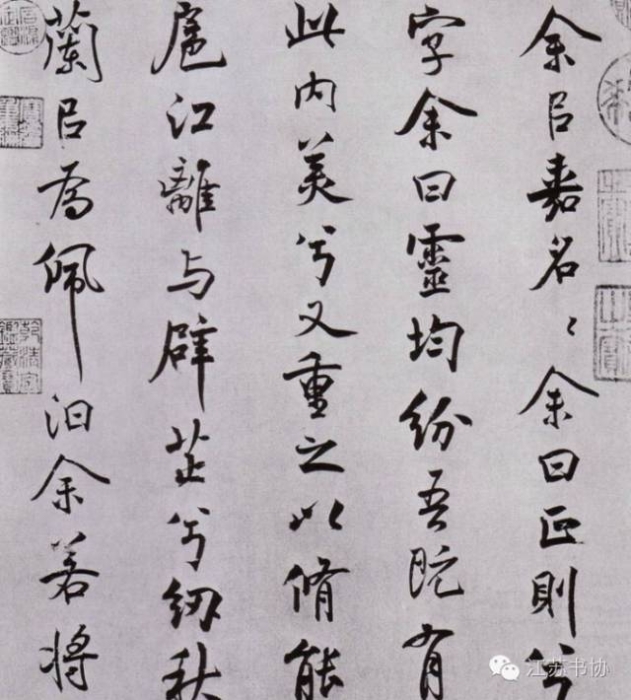 余㠯嘉名〻余曰正則兮
字余曰靈均紛吾既有
此内美兮又重之以脩能
扈江離与辟芷兮紉秋
蘭㠯為佩汩余若将
江苏书协